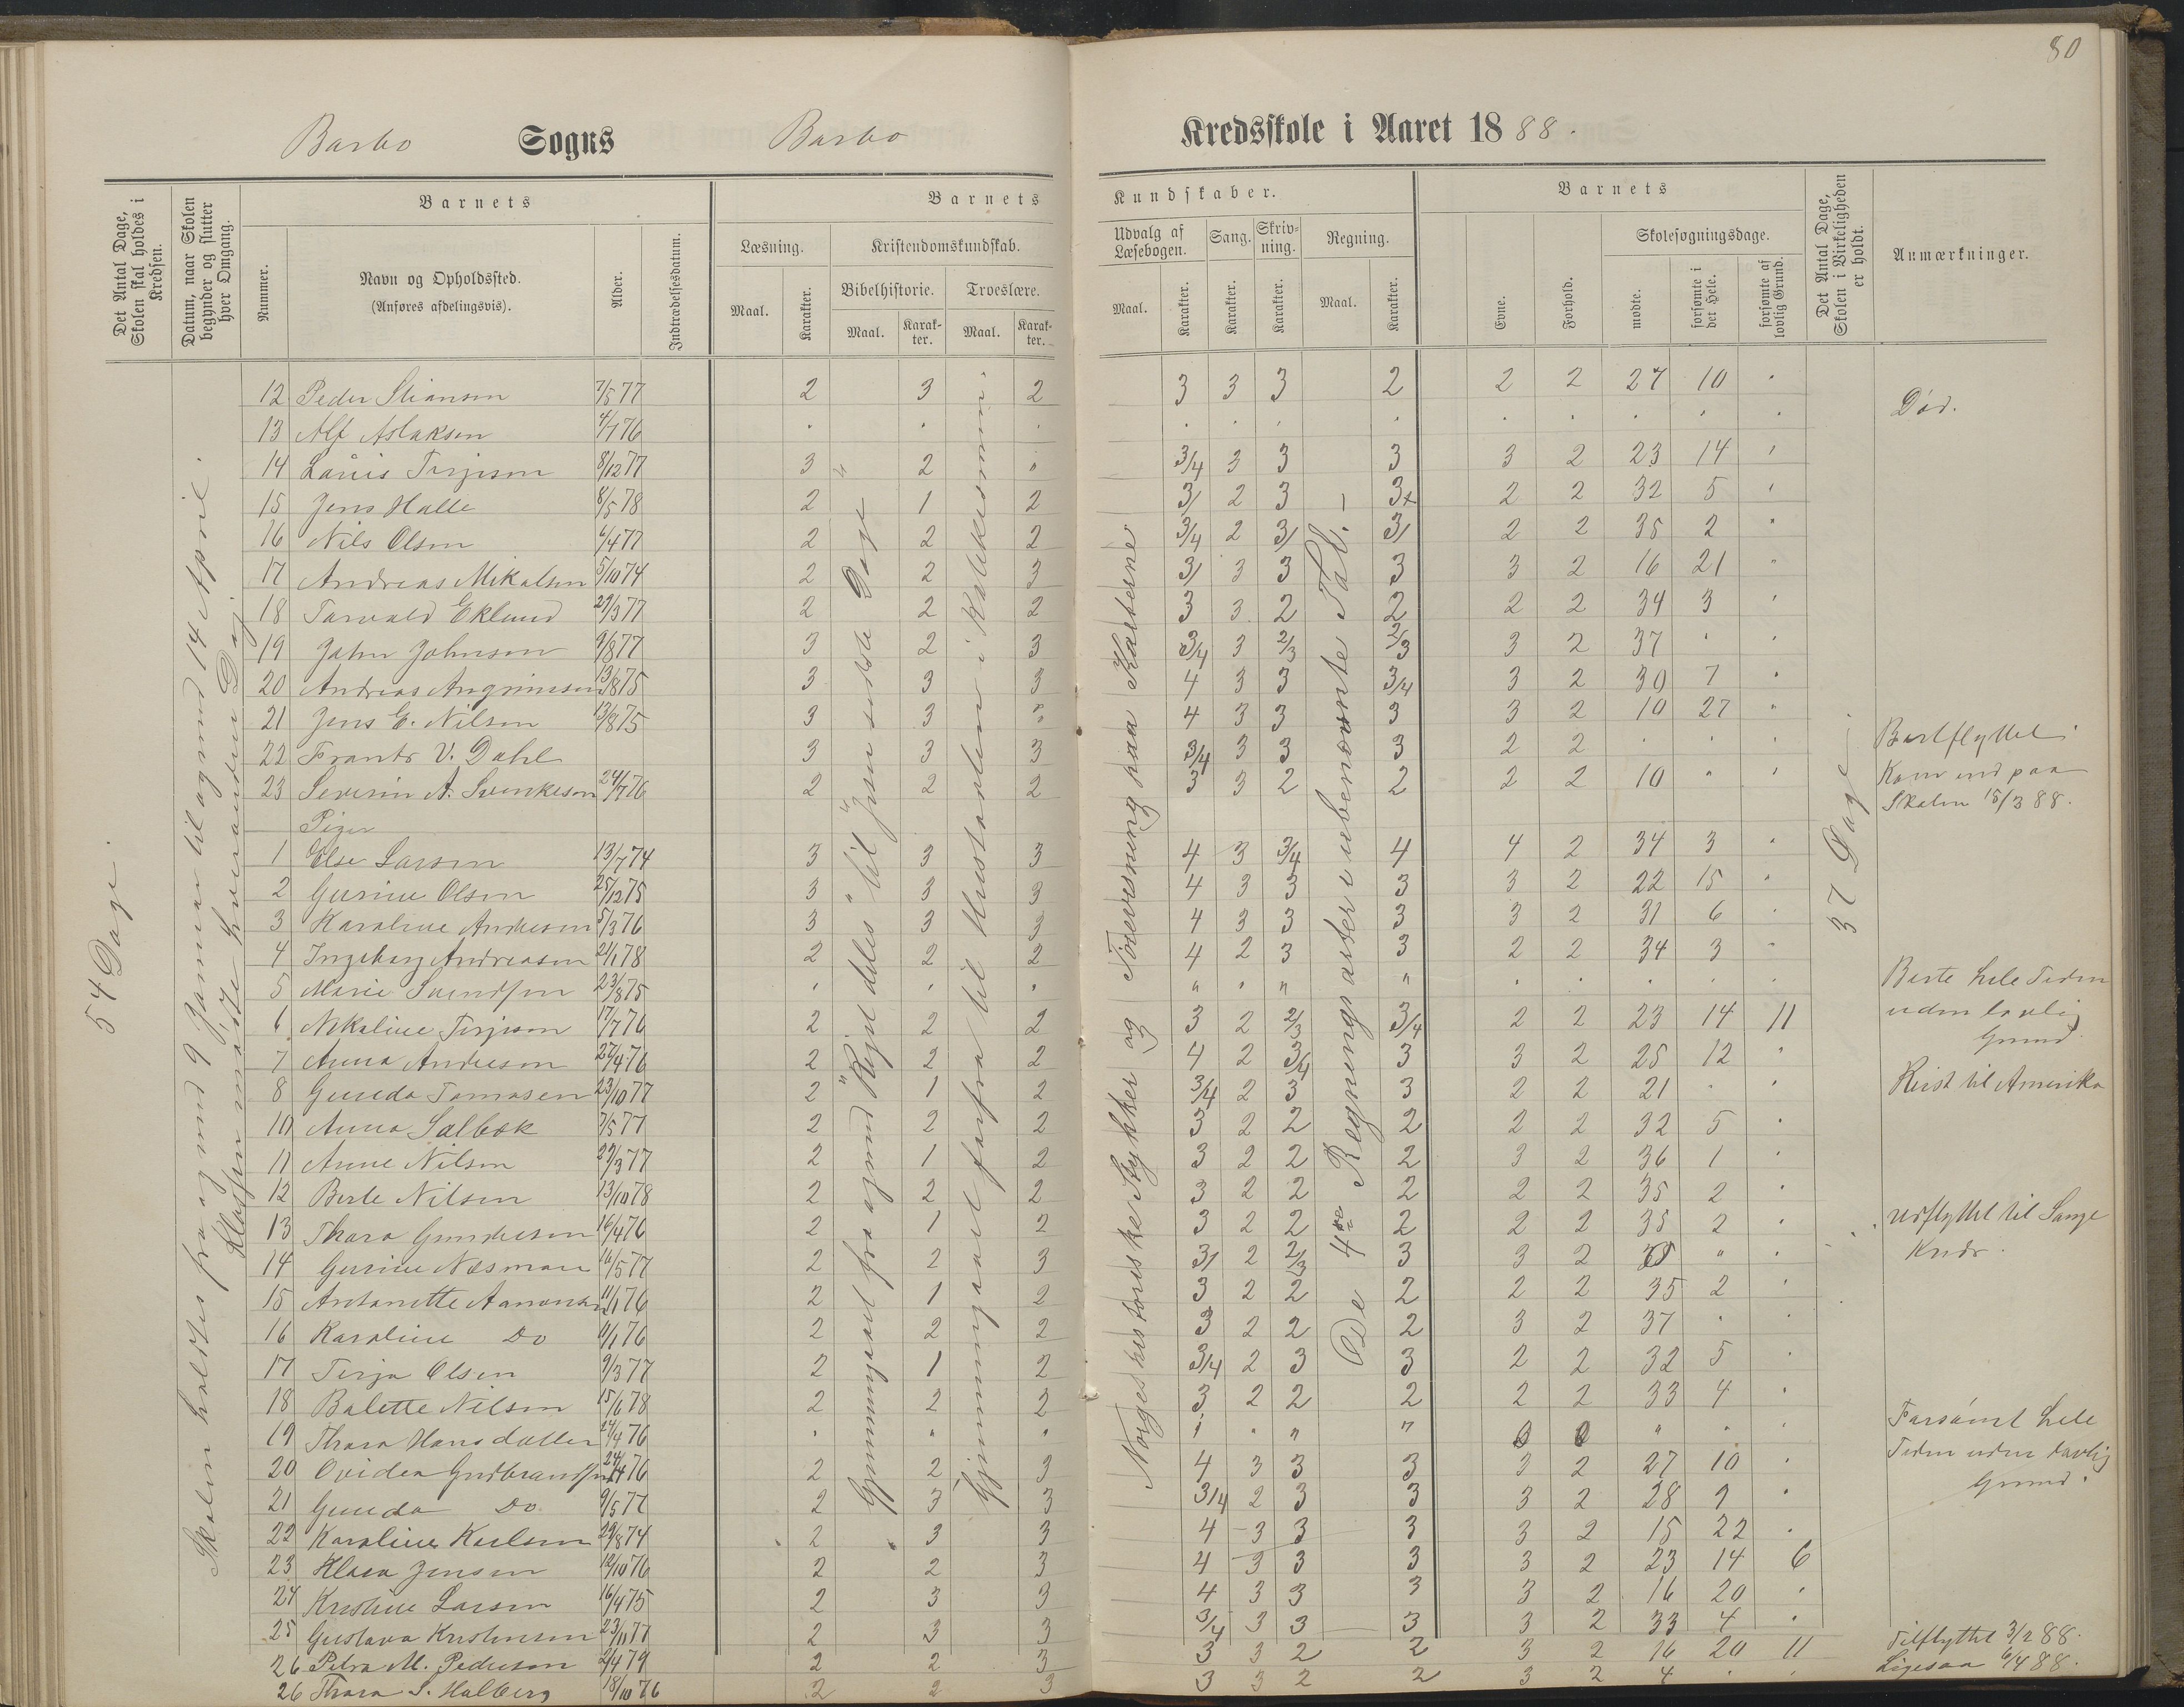 80
Barbo Sogns Barbo Kredsskole i Aaret 1888.
Det Antal Dage, Skolen skal holdes i Kredsen.
Datum, naar Skolen begynder og slutter hver Omgang.
Barnets
Nummer.
Navn og Opholdssted.
(Anføres afdelingsvis).
Alder.
Indtrædelsesdatum.
Barnets Kundskaber.
Læsning.
Maal.
Karakter.
Kristendomskundskab.
Bibelhistorie.
Maal.
Karakter.
Troeslære.
Maal.
Karakter.
Udvalg af Læsebogen.
Maal.
Karakter.
Sang.
Karakter.
Skrivning.
Karakter.
Regning.
Maal.
Karakter.
Barnets
Evne.
Forhold.
Skolesøgningsdage.
mødte.
forsømte i det Hele.
forsømte af lovlig Grund.
Det Antal Dage, Skolen i Virkeligheden er holdt.
Anmærkninger.
54 Dage.
Skolen holdtes fra og med 9 Januar til og med 14 April.
Klassen mødte hverandre Dag
Gjennemgaaet fra og med Riget deles til Jesu sidste Dage
Gjennemgaaet forfra til Hustavlen i Katekismen.
Norges historiske Stykker og Henvisning paa Karterne
De 4re Regningsarter i ubenævnte Tal.
37 Dage.
12 Peder Stiansen 7/5 77 2 3 2 3 3 3 2 2 2 27 10
13 Alf Aslaksen 4/1 76 Død.
14 Låuis Terjesen 8/12 77 3 2 3/4 3 3 3 3 2 23 14
15 Jens Halle 8/5 78 2 1 2 3/ 2 3 3+ 2 2 32 5
16 Nils Olsen 6/4 77 2 2 2 3/4 2 3/ 3/ 2 2 35 2
17 Andreas Mikalsen 5/10 74 2 2 3 3/ 3 3 3 3 2 16 21
18 Torvald Eklund 29/3 77 2 2 2 3 3 2 2 2 2 34 3
19 John Johnsen 9/8 77 3 2 3 3/4 3 2/3 2/3 3 2 37
20 Andreas Angrimsen 13/8 75 3 3 3 4 3 3 3/4 3 2 30 7
21 Jens E. Nilsen 13/8 75 3 3 4 3 3 3 3 2 10 27
22 Frants V. Dahl 3 3 3 3/4 3 3 3 2 2 Bortflyttet
23 Severin A. Svenkesen 24/7 76 2 2 2 3 3 2 2 2 2 10 Kom ind paa Skolen 15/3 88.
Piger
1 Else Larsen 13/7 74 3 3 3 4 3 3/4 4 4 2 34 3
2 Gurine Olsen 25/12 75 3 3 3 4 3 3 3 3 2 22 15
3 Karoline Andresen 5/3 76 3 3 3 4 3 3 3 3 2 31 6
4 Ingeborg Andreasen 21/1 78 2 2 2 4 2 3 3 2 2 34 3
5 Marie Svendsen 23/8 75 Borte hele Tiden uden lovlig Grund.
6 Nikoline Terjesen 17/7 76 2 2 2 3 2 2/3 3/4 2 2 23 14 11
7 Anna Andresen 27/4 76 2 2 2 4 2 3/4 3 3 2 25 12
8 Gunda Tomasen 23/10 77 2 1 2 3/4 2 3 3 2 2 21 Reist til Amerika
10 Anna Salbok 7/5 77 2 2 2 3 2 2 2 2 2 32 5
11 Anne Nilsen 29/3 77 2 1 2 3 2 2 2 3 2 36 1
12 Berte Nilsen 13/10 78 2 2 2 3 2 2 2 2 2 35 2
13 Thora Gundersen 16/4 76 2 1 2 3 2 2 2 2 2 35 2
14 Gurine Næsman 16/5 77 2 2 3 3/ 2 2/3 3 3 2 udflyttet til Lange Kreds.
15 Antonette Aanonsen 11/1 76 2 1 2 3 2 2 2 2 2 35 2
16 Karoline Do 11/1 76 2 2 2 3 2 2 2 3 2 37
17 Terja Olsen 9/3 77 2 1 2 3/4 2 3 3 2 2 32 5
18 Bolette Nilsen 15/6 78 2 2 2 3 2 2 2 2 2 33 4
19 Thora Hansdatter 24/4 76 Forsømt hele Tiden uden lovlig Grund.
20 Ovidea Gudbrandsen 24/4 76 2 2 3 4 3 3 3 3 2 27 10
21 Gunda Do 9/5 77 2 3 3 3/4 2 3 3 3 2 28 9
22 Karoline Karlsen 29/8 74 2 3 3 4 3 3 3 3 2 15 22
23 Klara Jensen 12/10 76 2 2 3 4 3 3 3 3 2 23 14 6
24 Kristine Larsen 16/4 75 2 3 3 4 3 3 3 3 2 16 20
25 Gustava Kristensen 23/11 77 2 3 3 3/4 3 3 3 3 2 33 4
26 Petra M. Pedersen 2/4 79 2 2 3 3 3 2 2 3 2 16 20 11 Tilflyttet 3/2 88.
26 Thora S. Halberg 18/10 76 2 2 3 3 3 2 2 3 2 4 Ligesaa 6/4 88.